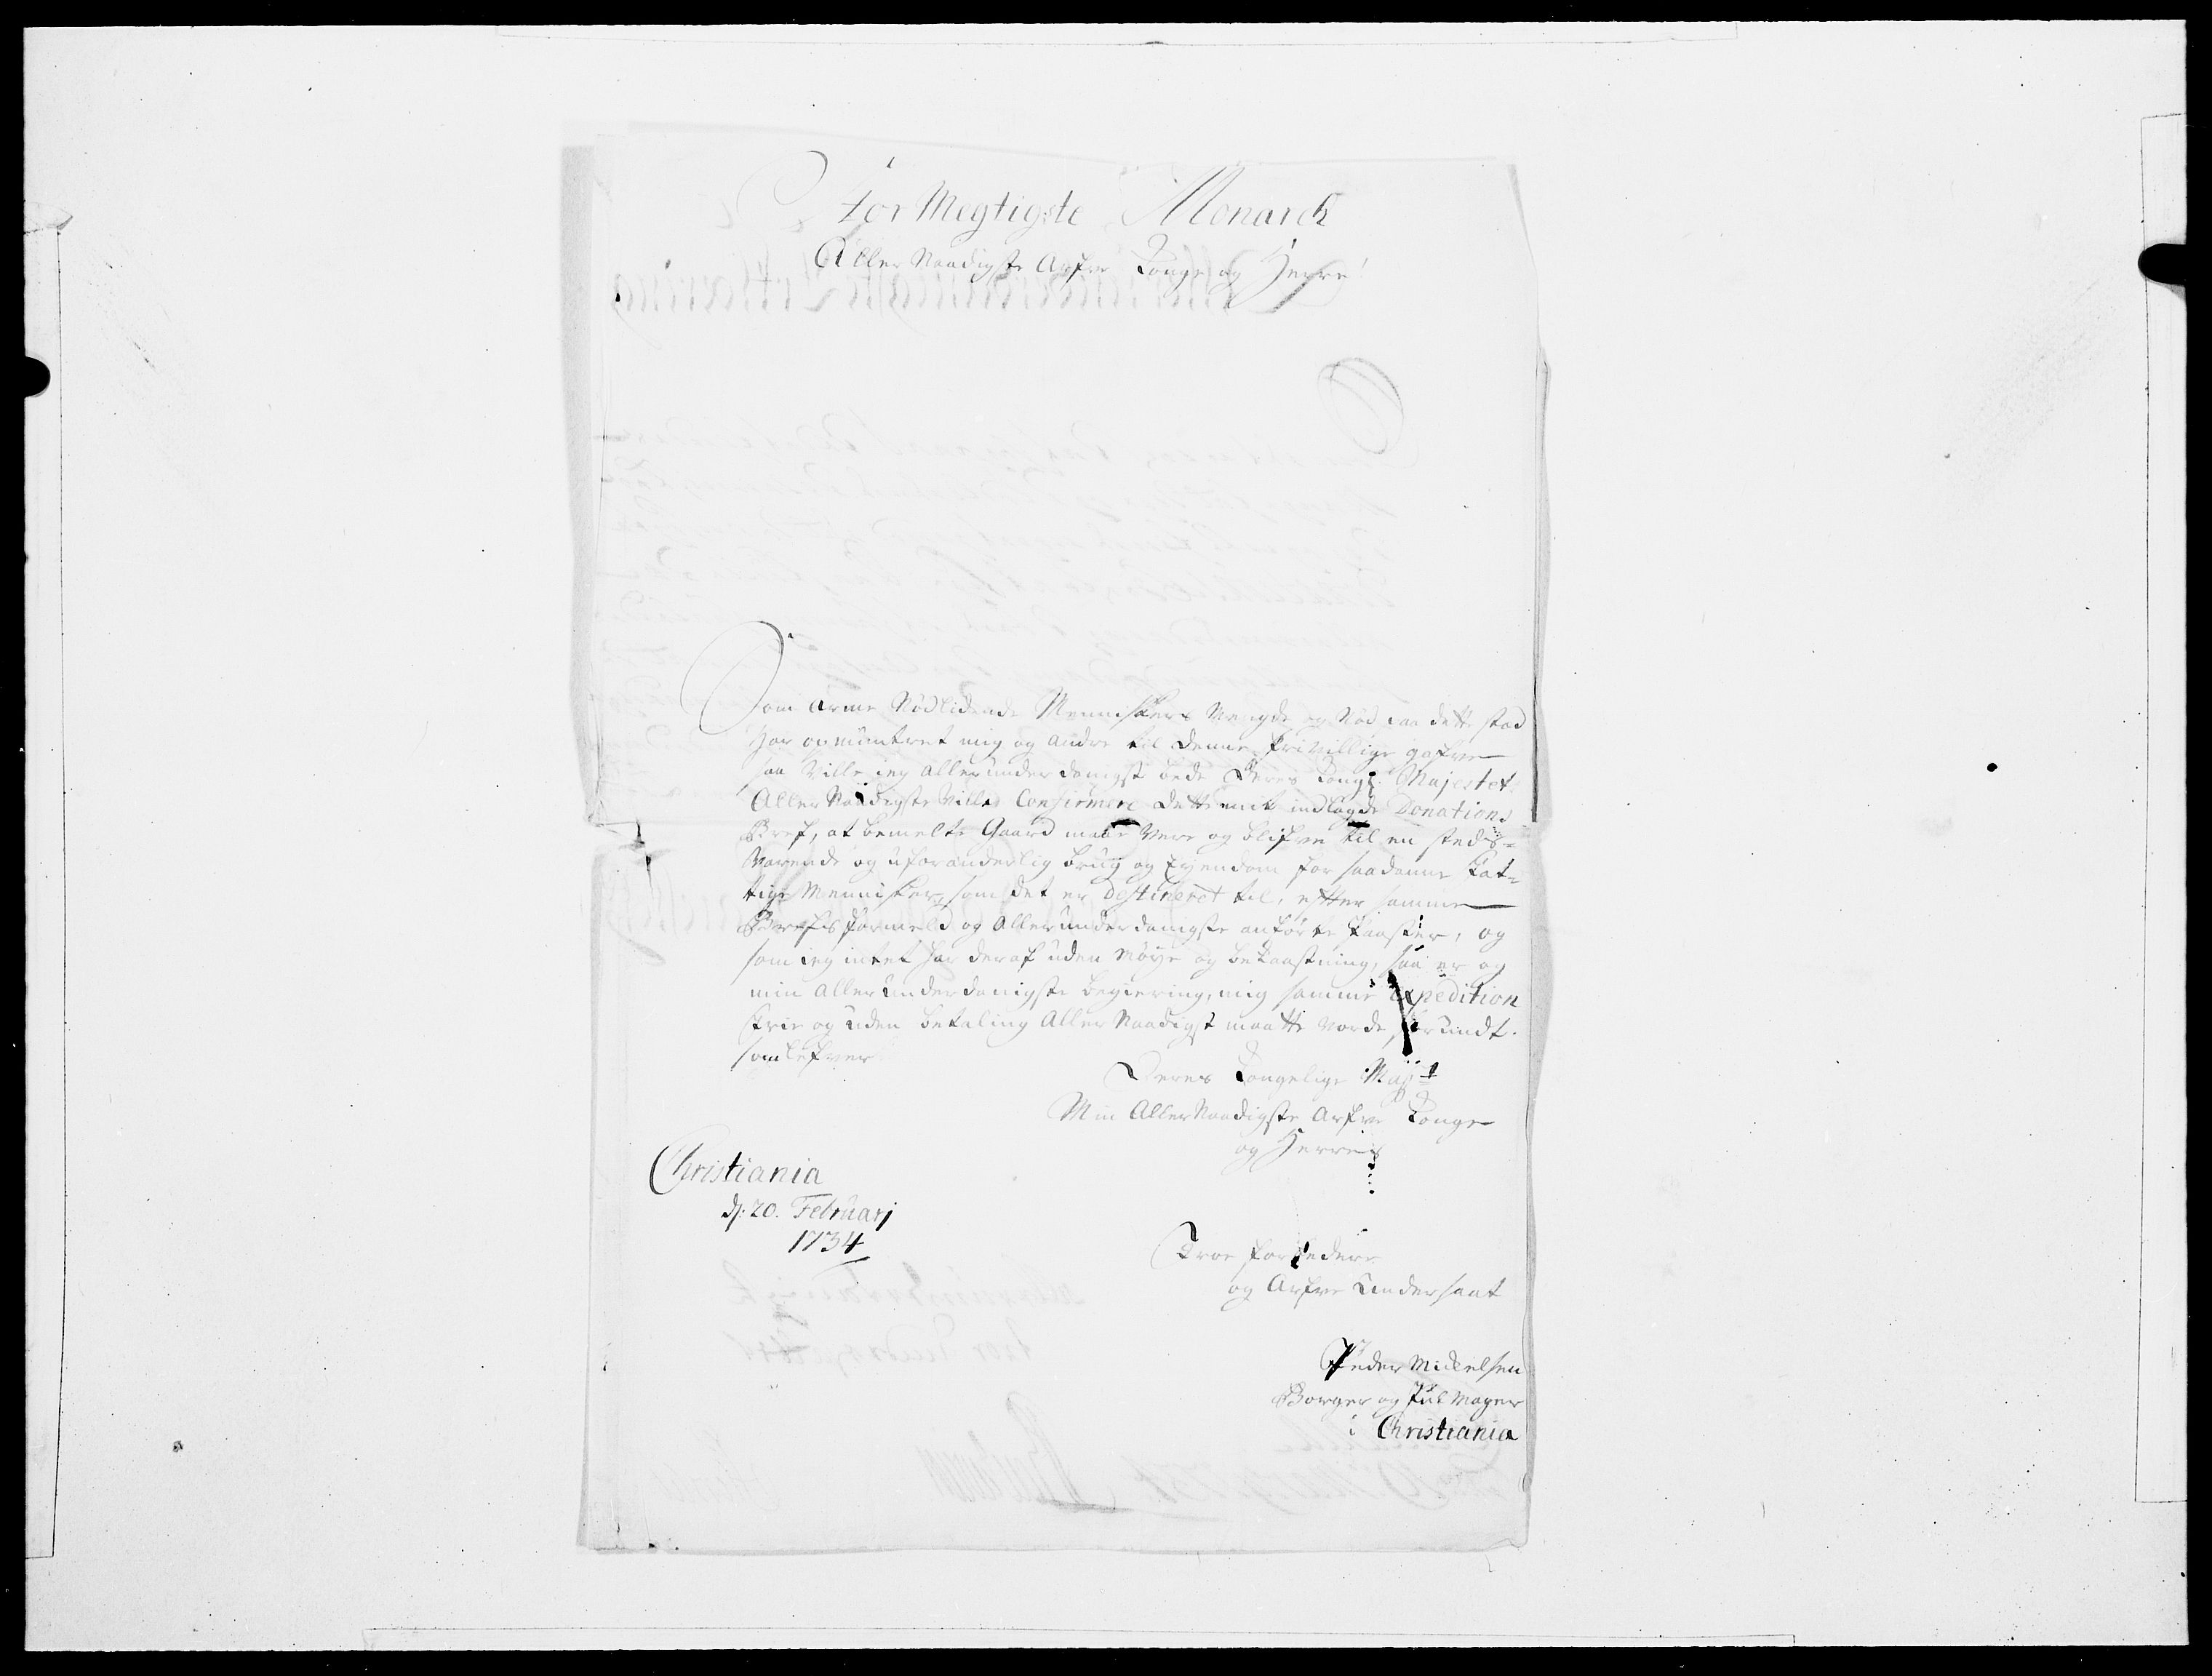 Stor Megtigste Monarch
Aller Naadigste Arfve Konge og Herre!
Som Arme Nødlidende Menniskers Mengde og Nød paa dette stad
har opmuntret mig og andre til denne frivillige gafve
saa Ville jeg allerunderdanigst bede Deres Kongl: Majestet
Aller Naadigste Villed Confirmere dette mit indlagde Donations
Bref, at bemelte Gaard maae Vere og blifve til en steds-
Varende og uforanderlig brug og Eyendom for saadanne Fat-
tige Mennisker, som det er destineret til, efter samme
Brefs formeld og Allerunderdanigste anførte Poster, og
som jeg intet har deraf uden Møye og bekaastning, saa er og
min allerunderdanigste begiering, mig samme Expedition
frie og uden betaling Aller Naadigst maatte vorde forundt.
som lefver
Deres Kongelige Maj:t
Min AllerNaadigste Arfve Konge
og Herres
Christiania
d: 20. Februarj
1734
Troe forbedere
og Arfve Undersaat
Peder Mickelsen
Borger og Hulmager
i Christiania